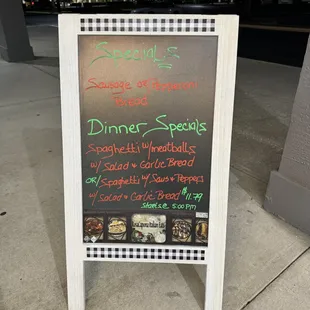 Specials
Sausage or
Dinner Specials
Spaghetti w/meatballs
w/ Salad & Garlic Bread
OR/Spaghetti w/ Saus & Peppers
w/ Salad & Garlic Bread $11.79
Starts @ 5:00 PM
Italian Eats